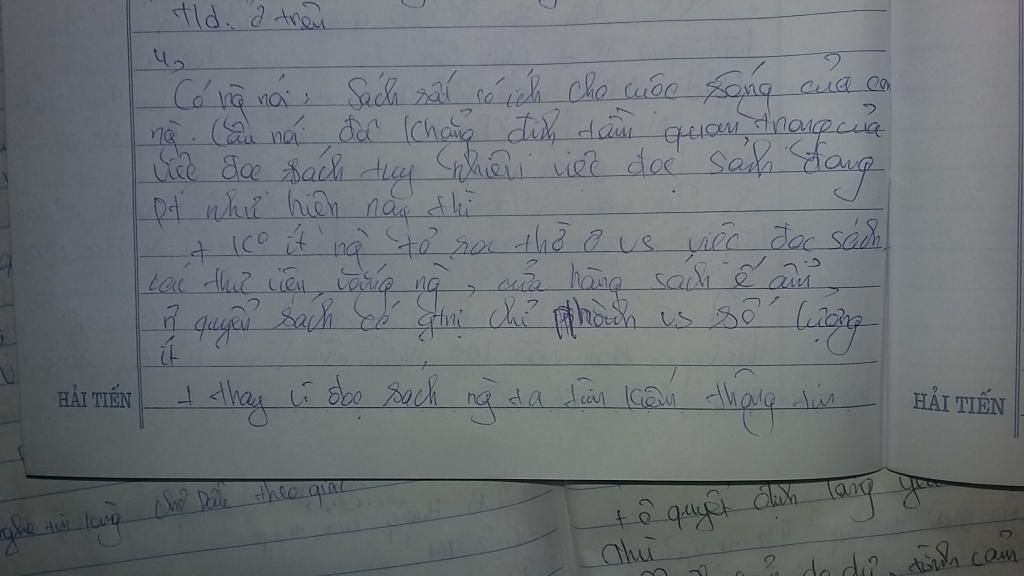 tld. ở trên
4,
Có ng nói: Sách rất có ích cho cuộc sống của co
ng. Câu nói đã khẳng định tầm quan trọng của
việc đọc sách tuy nhiên việc đọc sách đang
pt như hiện nay thì
+ Ko ít ng tỏ ra thờ ơ vs việc đọc sách
các thư viện vắng ng, cửa hàng sách ế ẩm,
n~ quyển sách có gtrị chỉ phành vs số lượng
ít
+ thay vì đọc sách ng ta tìm kiếm thông tin
HẢI TIẾN
HẢI TIẾN
theo giai
+ ô quyết định làng
như
tình cảm